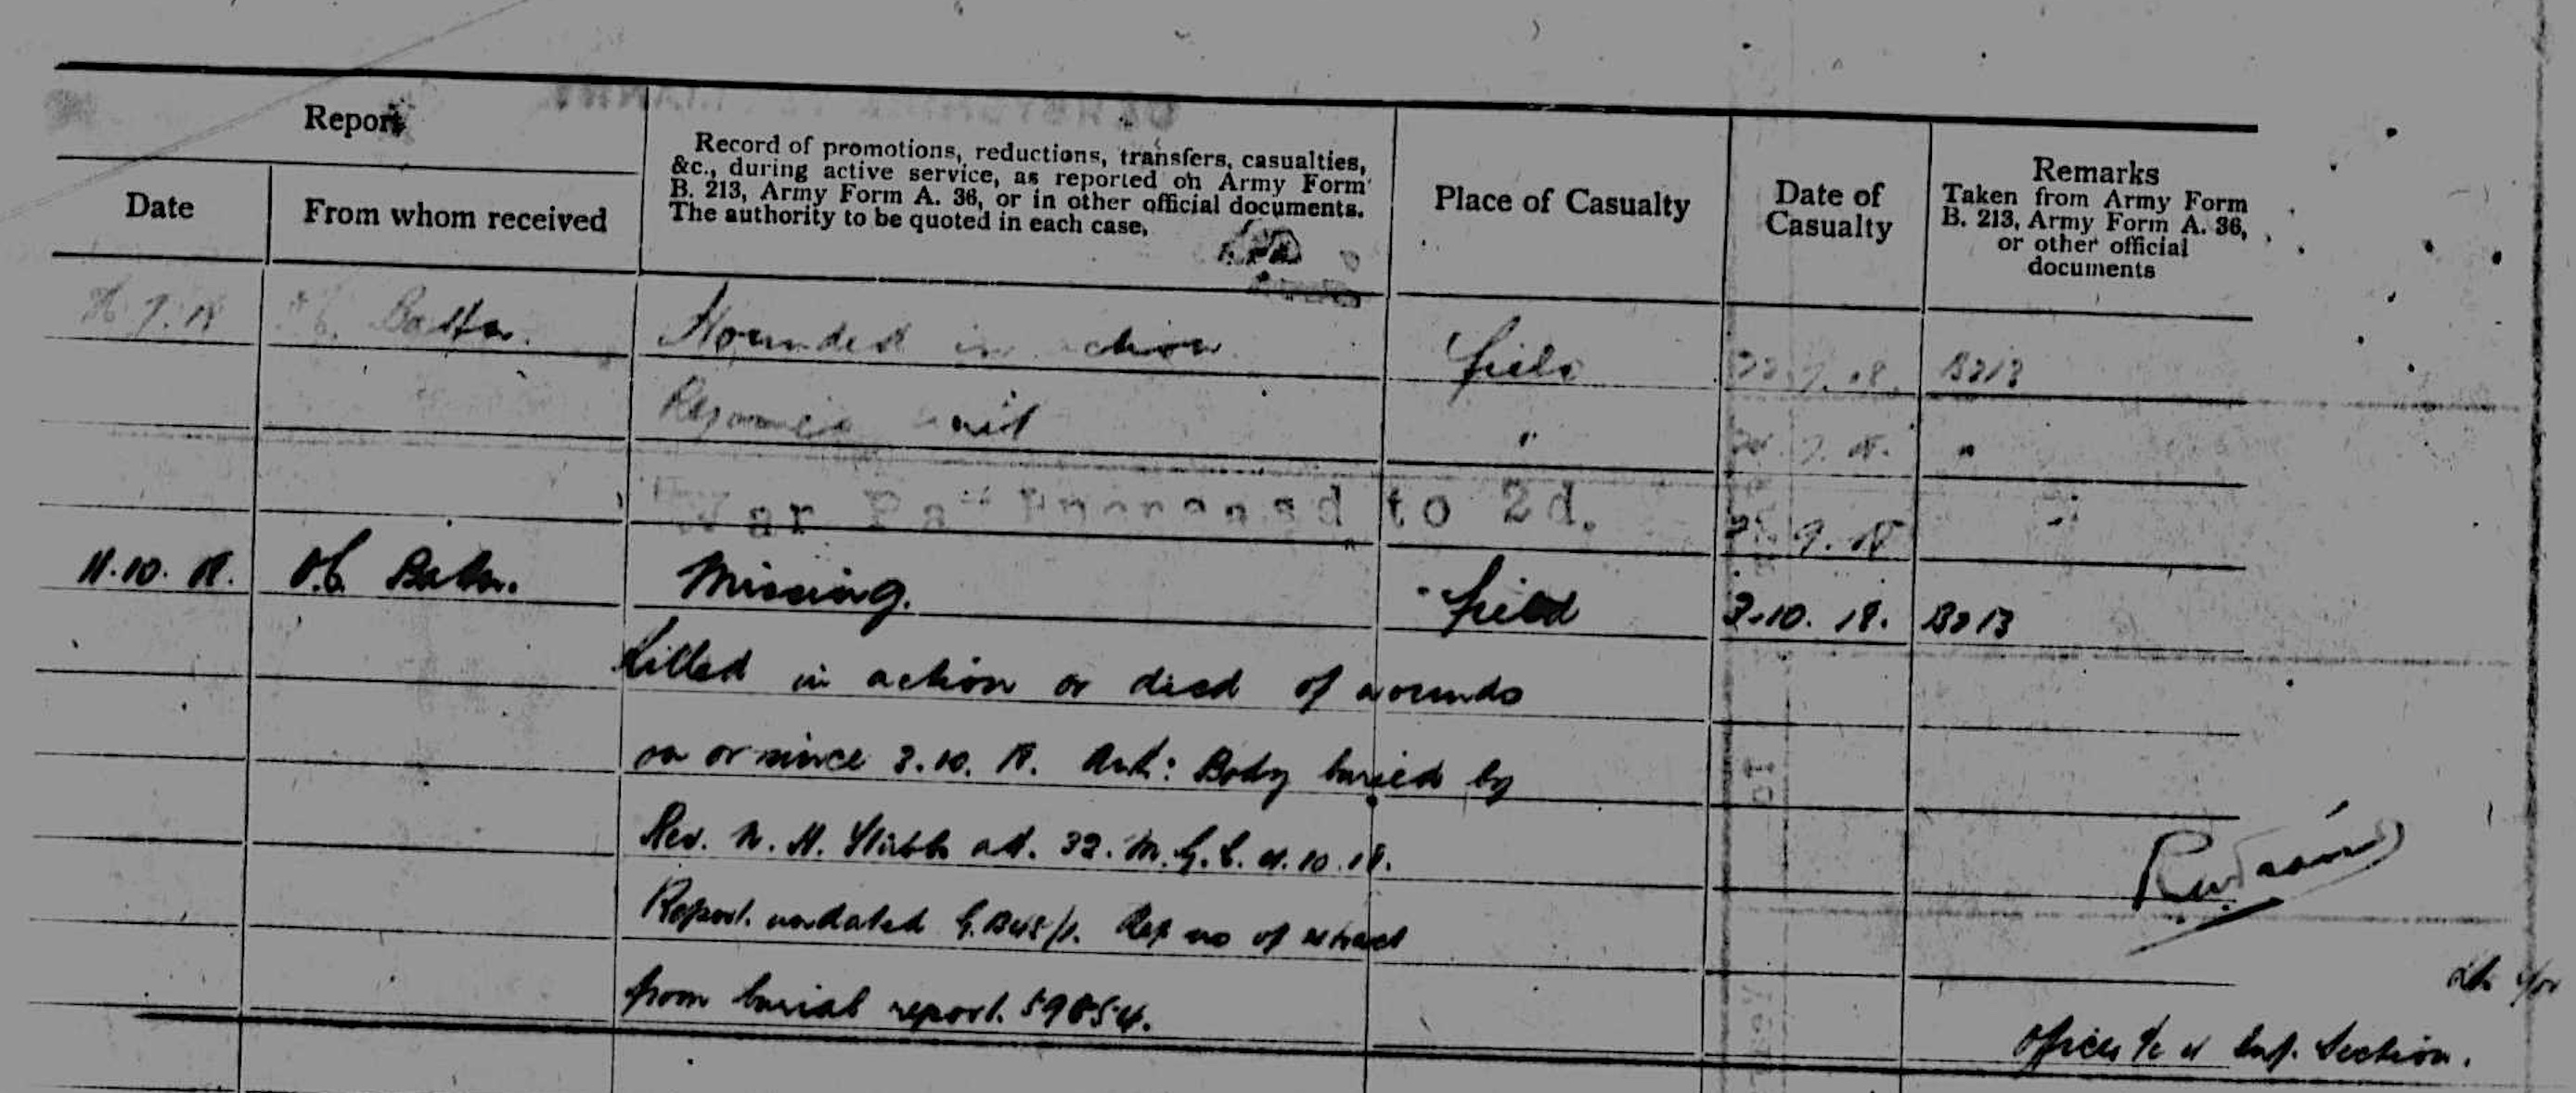 Report
Date
From whom received
Record of promotions, reductions, transfers, casualties,
&c., during active service, as reported on Army Form
B. 213, Army Form A. 36, or in other official documents.
The authority to be quoted in each case.
Place of Casualty
Date of
Casualty
Remarks
Taken from Army Form
B. 213, Army Form A. 36,
or other official
documents
7.18 Battn. Wounded in action Field 7.18. B213
Rejoined unit " 7.18. "
War Pay Increased to 2d. 9.18
11.10.18. O.C. Battn. Missing. Field 3.10.18. B213
Killed in action or died of wounds
on or since 3.10.18. Auth: Body buried by
Rev. N. H. att. 32. M.G.C. 4.10.18.
Report undated Ref no of extract
from burial report. 59854.
Officer i/c 4 Inf. Section.